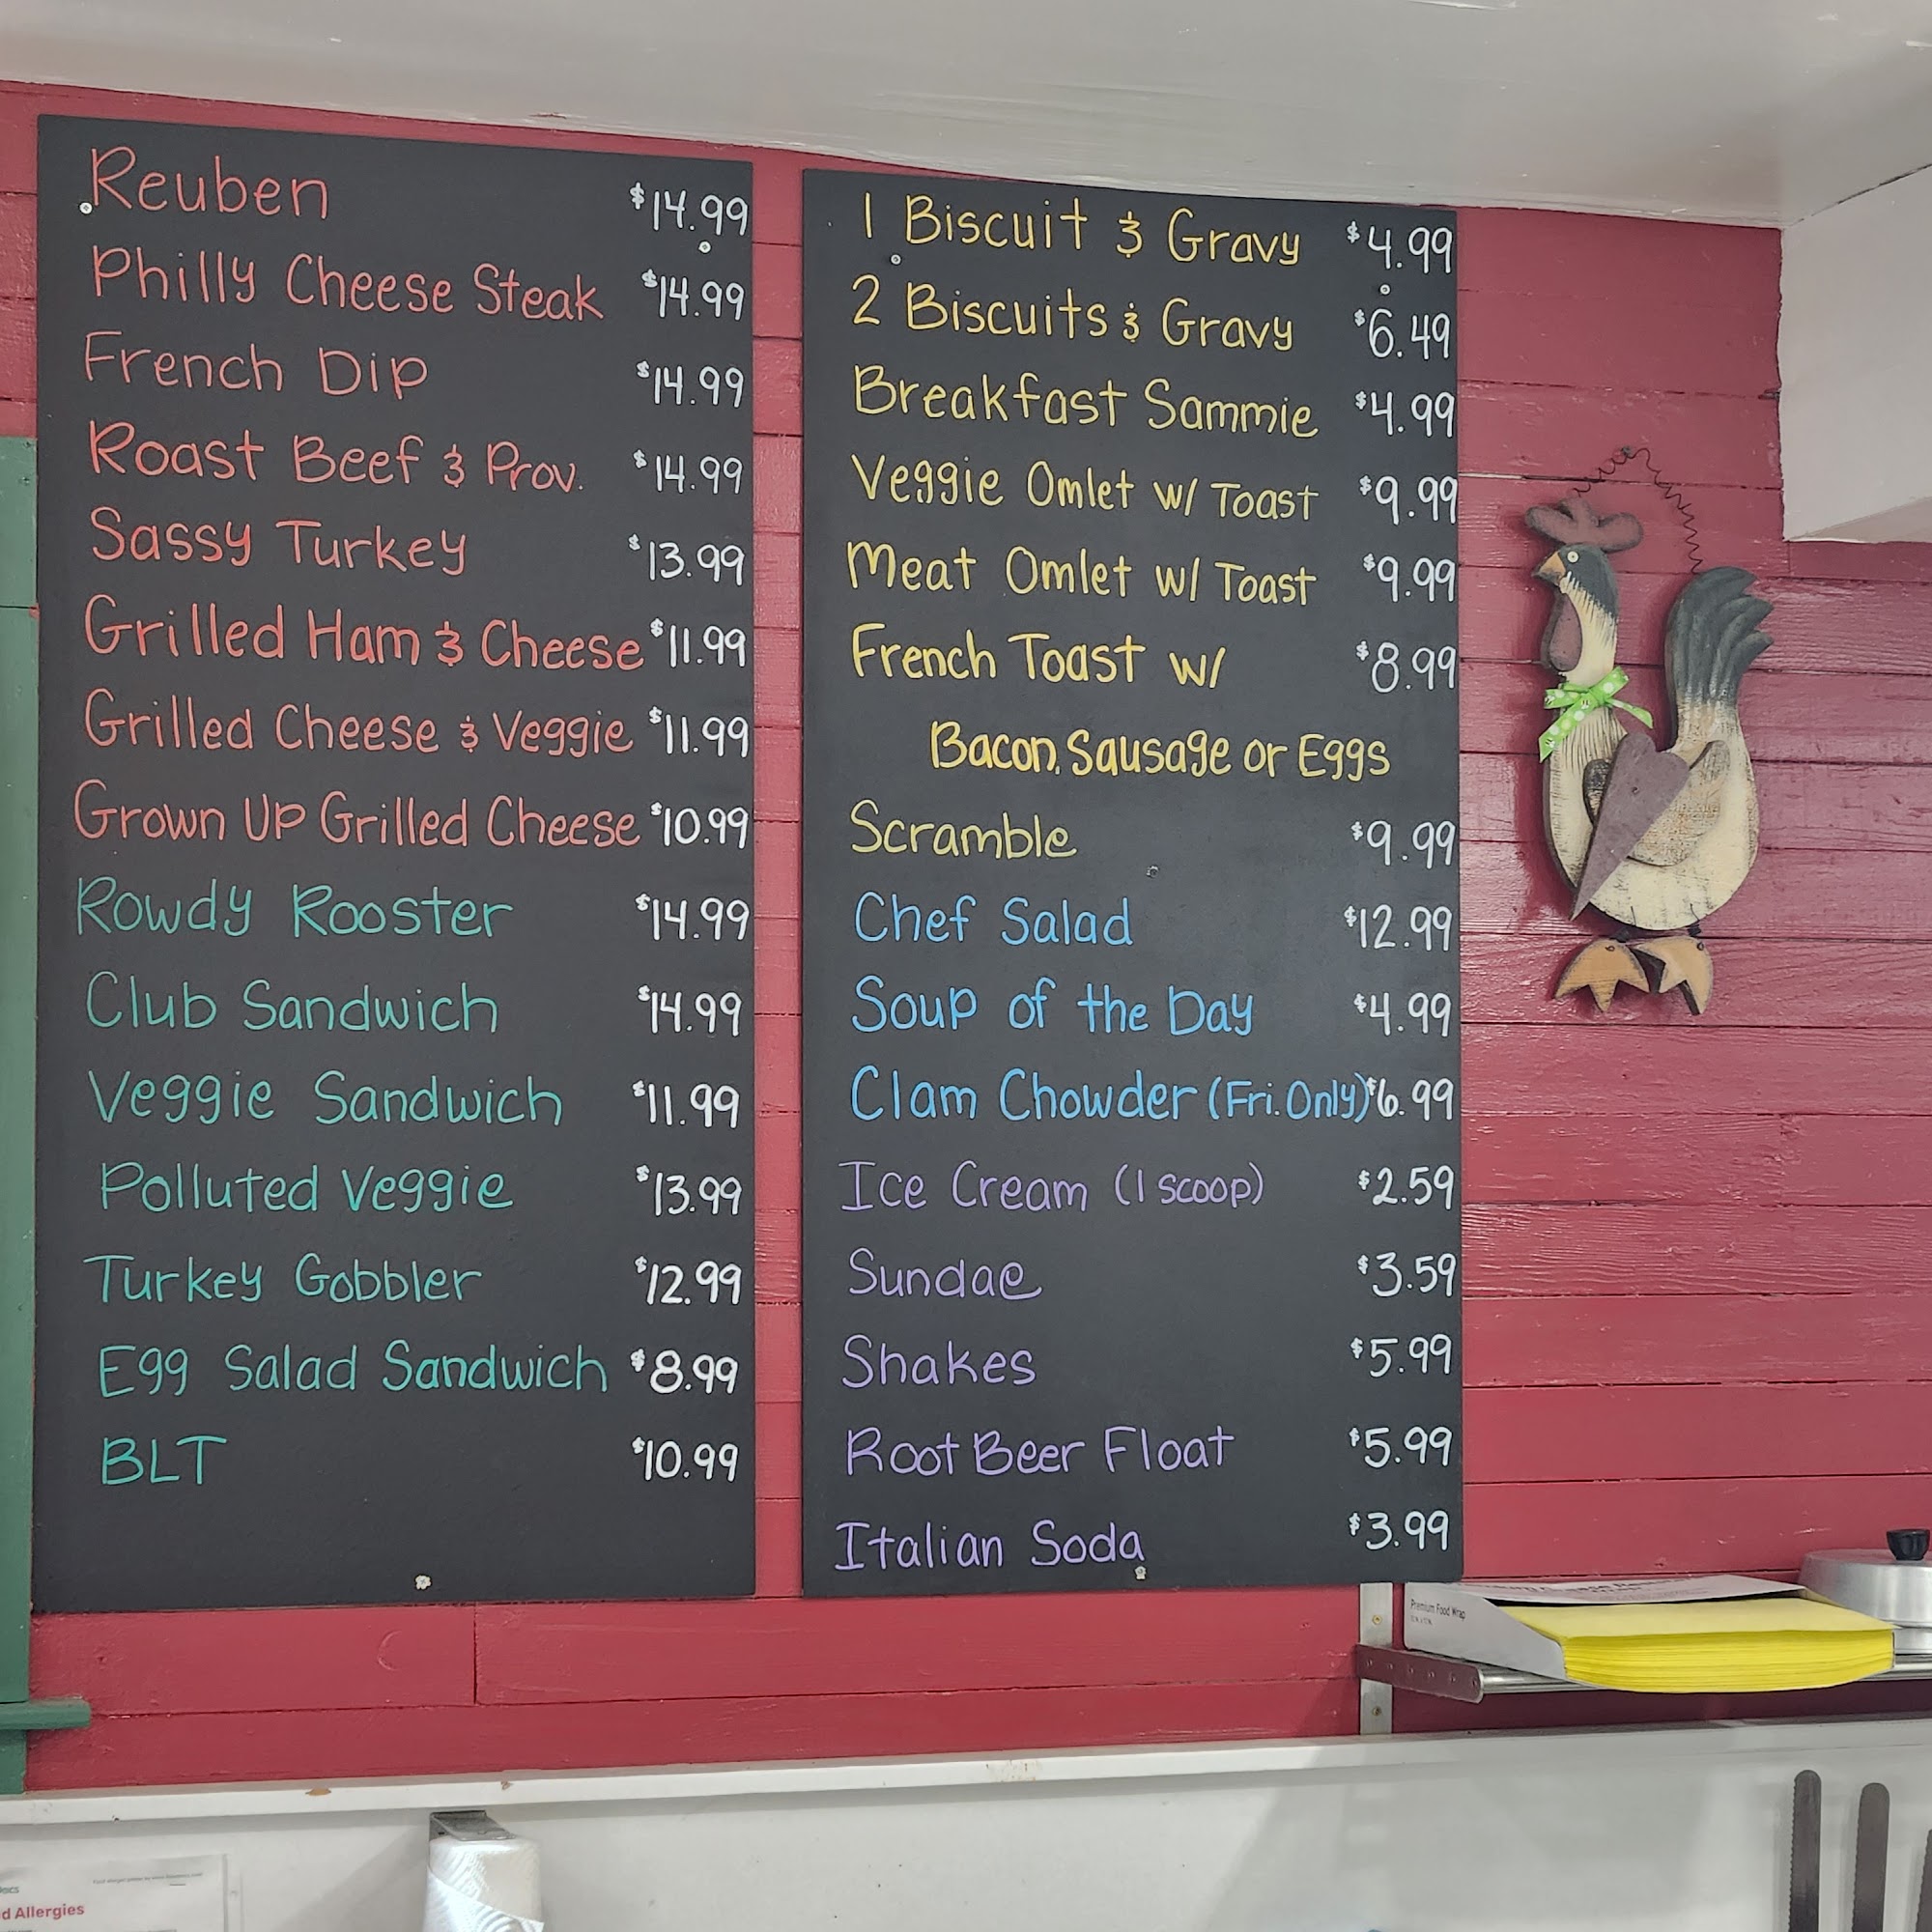 Reuben $14.99
Philly Cheese Steak $14.99
French Dip $14.99
Roast Beef & Prov. $14.99
Sassy Turkey $13.99
Grilled Ham & Cheese $11.99
Grilled Cheese & Veggie $11.99
Grown Up Grilled Cheese $10.99
Rowdy Rooster $14.99
Club Sandwich $14.99
Veggie Sandwich $11.99
Polluted Veggie $13.99
Turkey Gobbler $12.99
Egg Salad Sandwich $8.99
BLT $10.99
1 Biscuit & Gravy $4.99
2 Biscuits & Gravy $6.49
Breakfast Sammie $4.99
Veggie Omlet w/ Toast $9.99
Meat Omlet w/ Toast $9.99
French Toast w/ $8.99
Bacon, Sausage or Eggs
Scramble $9.99
Chef Salad $12.99
Soup of the Day $4.99
Clam Chowder (Fri. Only) $6.99
Ice Cream (1 scoop) $2.59
Sundae $3.59
Shakes $5.99
Root Beer Float $5.99
Italian Soda $3.99
Premium Food Wrap
d Allergies